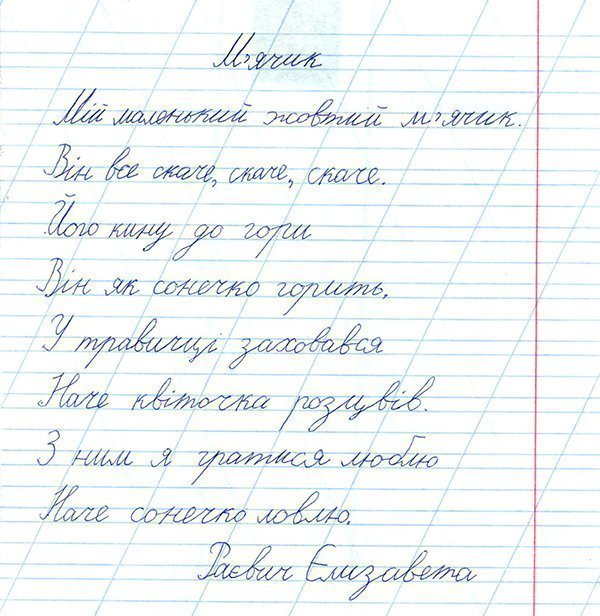 М'ячик
Мій маленький жовтий м'ячик.
Він все скаче, скаче, скаче.
Його кину до гори
Він як сонечко горить.
У травичці заховався
Наче квіточка розцвів.
З ним я гратися люблю
Наче сонечко ловлю.
Раєвич Єлизавета